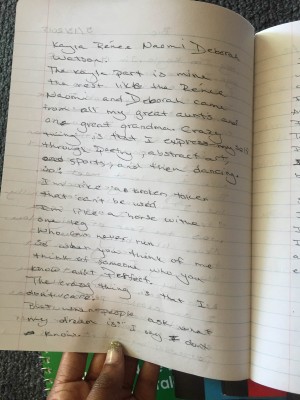 Kayla Renee Naomi Deborah
Watson:
The Kayla part is mine
the rest like the Reneee
Naomi and Deborah came
from all my great aunts and
one great grandma. Crazy
thing is that I express my self
through poetry, abstract art,
sports, and then dancing.
so:
I'm like a broken token
that can't be used
I'm like a horse with
one leg
who can never run
so when you think of me
think of someone who you
know ain't Perfect.
The crazy thing is that I
don't care!
But when people ask what
my dream is: I say I don't
know.
ral